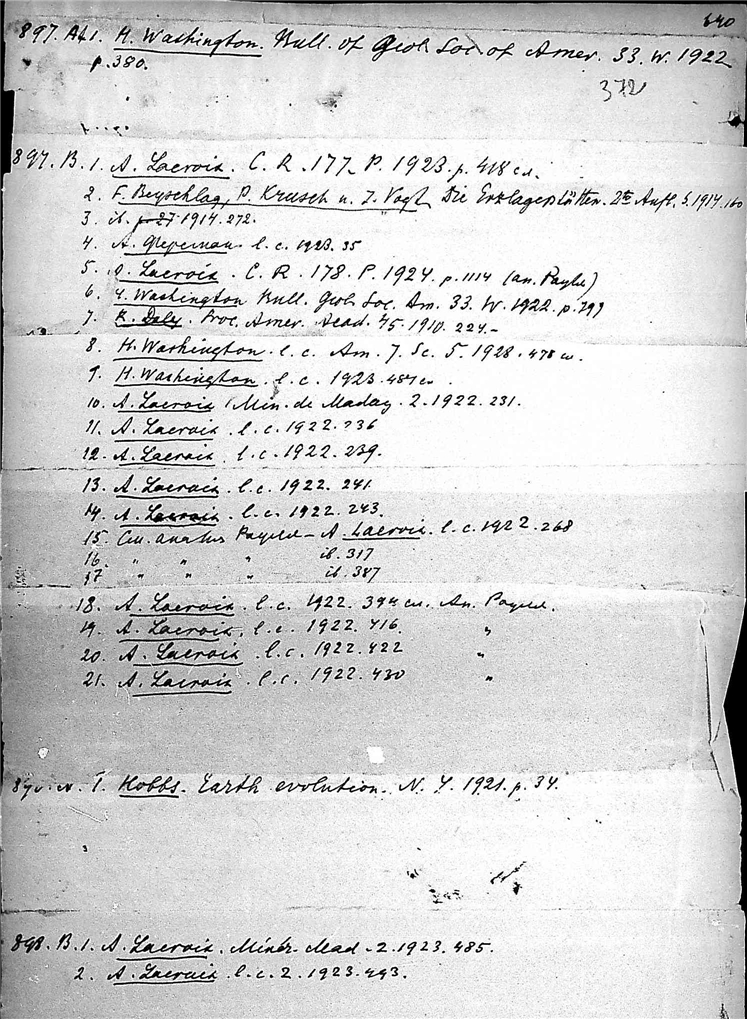 640
897. A1. H. Washington. Bull. of Geol. Soc. of Amer. 33. W. 1922
p. 380.
372
897. B. 1. A. Lacroix. C. R. 177. P. 1923. p. 418 сл.
2. F. Beyschlag, P. Krusch u. J. Vogt. Die Erzlagerstätten. 2te Aufl. S. 1914. 160
3. ib. p 27 1914. 272.
4. l. c. 1923. 35
5. A. Lacroix. C. R. 178. P. 1924. p. 1114 (an.
6. H. Washington Bull. Geol. Soc. Am. 33. W. 1922. p. 797
7. R. Daly. Proc. Amer. Acad. 45. 1910. 224.-
8. H. Washington. l. c. Am. J. Sc. 5. 1928. 478 сл.
9. H. Washington. l. c. 1923. 487 сл.
10. A. Lacroix Min. de Madag. 2. 1922. 231.
11. A. Lacroix. l. c. 1922. 236
12. A. Lacroix. l. c. 1922. 239.
13. A. Lacroix. l. c. 1922. 241
14. A. Lacroix. l. c. 1922. 243.
15. См. анализ - A. Lacroix. l. c. 1922. 268
16. " " " ib. 317
17. " " " ib. 387
18. A. Lacroix. l. c. 1922. 394 сл. Ан.
19. A. Lacroix. l. c. 1922. 416. "
20. A. Lacroix. l. c. 1922. 422 "
21. A. Lacroix. l. c. 1922. 430 "
Hobbs. Earth evolution. N. Y. 1921. p. 34.
898. B. 1. A. Lacroix. Minér. Mad. 2. 1923. 485.
2. A. Lacroix. l. c. 2. 1923. 493.